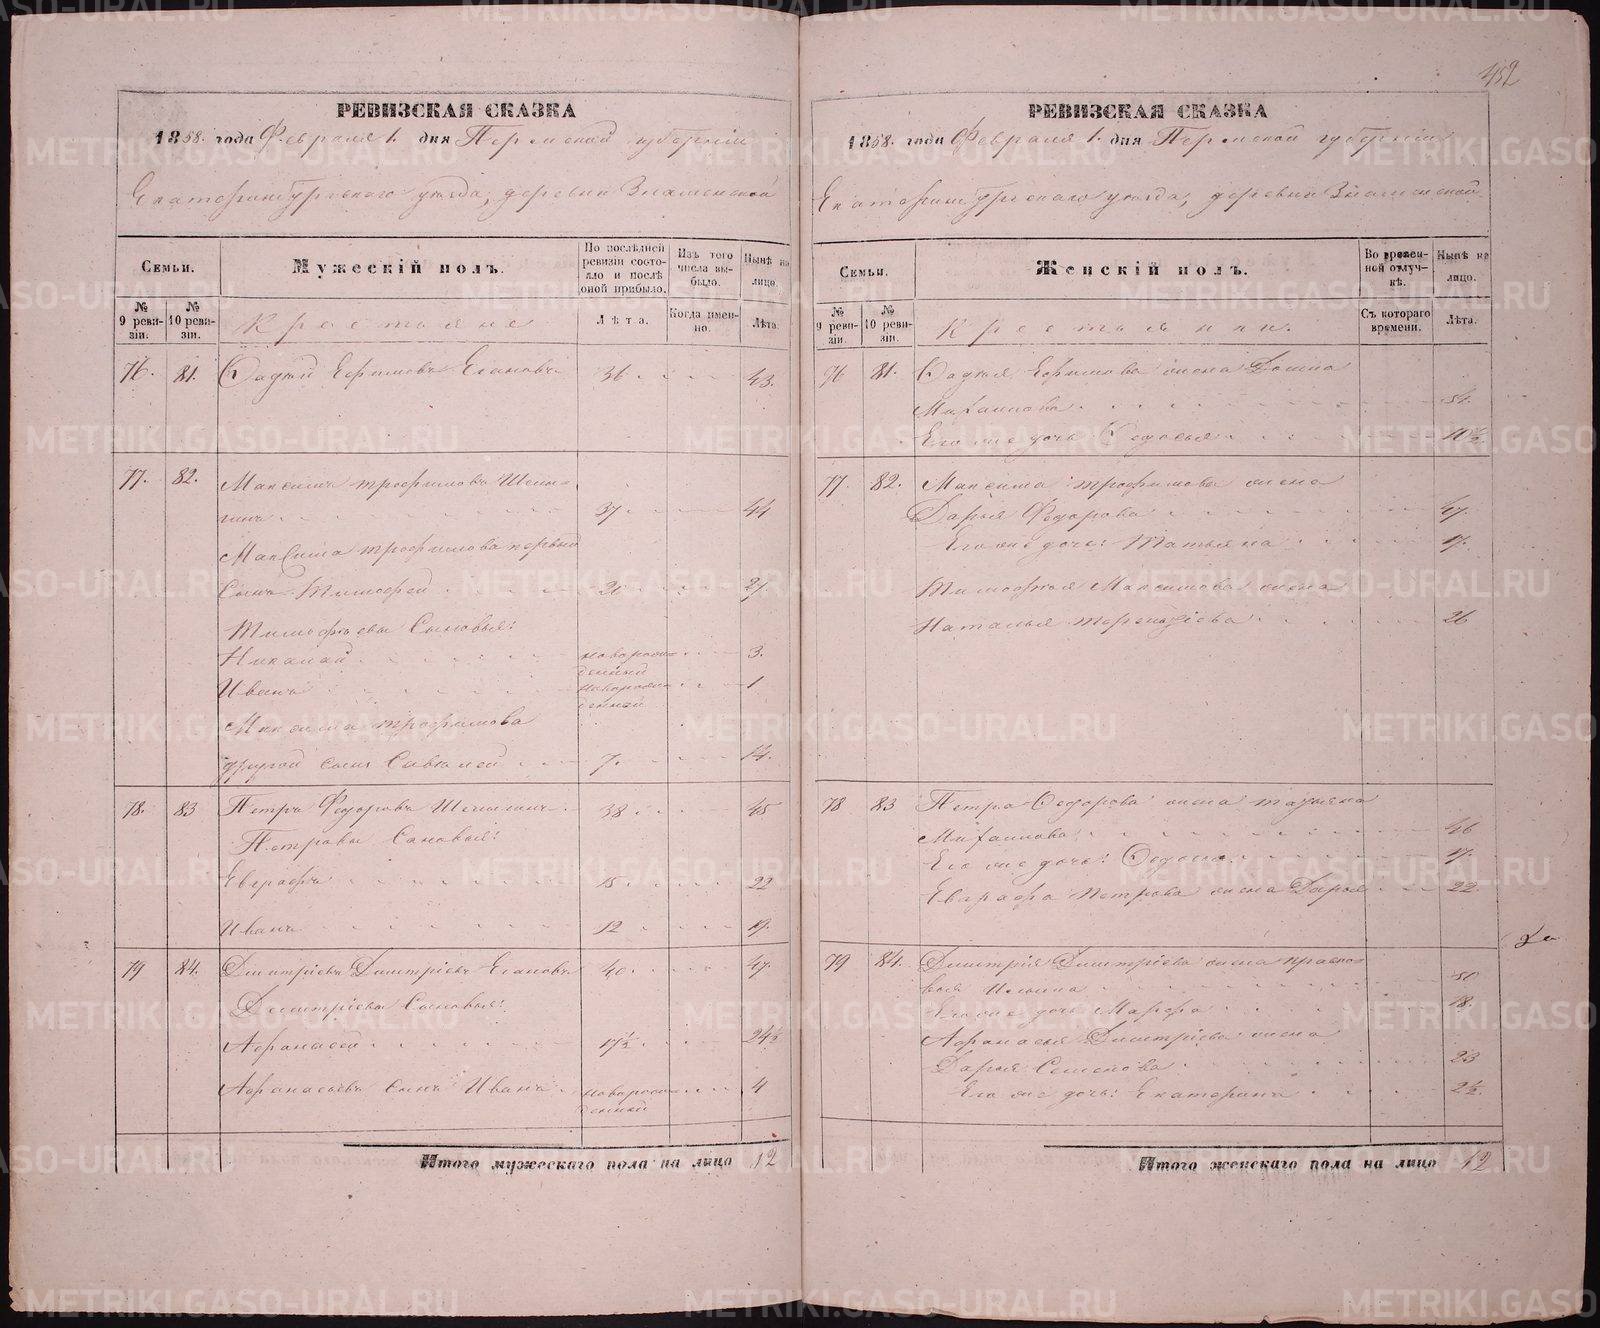 452
РЕВИЗСКАЯ СКАЗКА
1858. года Февраля 1. дня Пермской губернiи
Екатеринбургскаго уѣзда, деревни Знаменской
Семьи.
Мужескiй полъ.
По послѣдней ревизiи состояло и послѣ оной прибыло.
Изъ того числа выбыло.
Нынѣ на лицо.
№ 9 ревизiи.
№ 10 ревизiи.
Крестьяне
Лѣта.
Когда именно.
Лѣта.
76. 81. Ефимовъ 36 43.
77. 82. Максимъ Трофимовъ
гинъ 37 44
Максима Трофимова первый
Сынъ Тимофей 20 27.
Тимофѣевы Сыновья:
Николай новорожденный 3.
Иванъ новорожденный 1
Максима Трофимова
другой сынъ Савелей 7. 14.
78. 83 Петръ Федоровъ 38 45
Петровы Сыновья:
Евграфъ 15 22
Иванъ 12 19.
79 84. Дмитрiевъ 40 47.
Дмитрiевы Сыновья:
Афанасей 17½ 24½
Афанасьевъ сынъ Иванъ новорожденный 4
Итого мужескаго пола на лицо 12
РЕВИЗСКАЯ СКАЗКА
1858. года Февраля 1. дня Пермской губернiи
Екатеринбургскаго уѣзда, деревни Знаменской
Семьи.
Женскiй полъ.
Во временной отлучкѣ.
Нынѣ на лицо.
№ 9 ревизiи.
№ 10 ревизiи.
Крестьянки.
Съ котораго времени.
Лѣта.
76 81. Ефимова жена
Михаилова 51.
Его же дочь Федосья 10½
77 82. Максима Трофимова жена
Дарья Федорова 47.
Его же дочь: Татьяна 17.
Тимофѣя Максимова жена
Наталья Терентiева 26
78 83 Петра Федорова жена Татьяна
Михаилова 46
Его же дочь: 17.
Евграфа Петрова жена Дарья 22
79 84. Дмитрiя Дмитрiева жена Праско-
вья Ильина 50
Его же дочь Марфа 18.
Афанасья Дмитрiева жена
Дарья Семенова 23
Его же дочь: Екатерина 2½.
Итого женскаго пола на лицо 12
METRIKI.GASO-URAL.RU